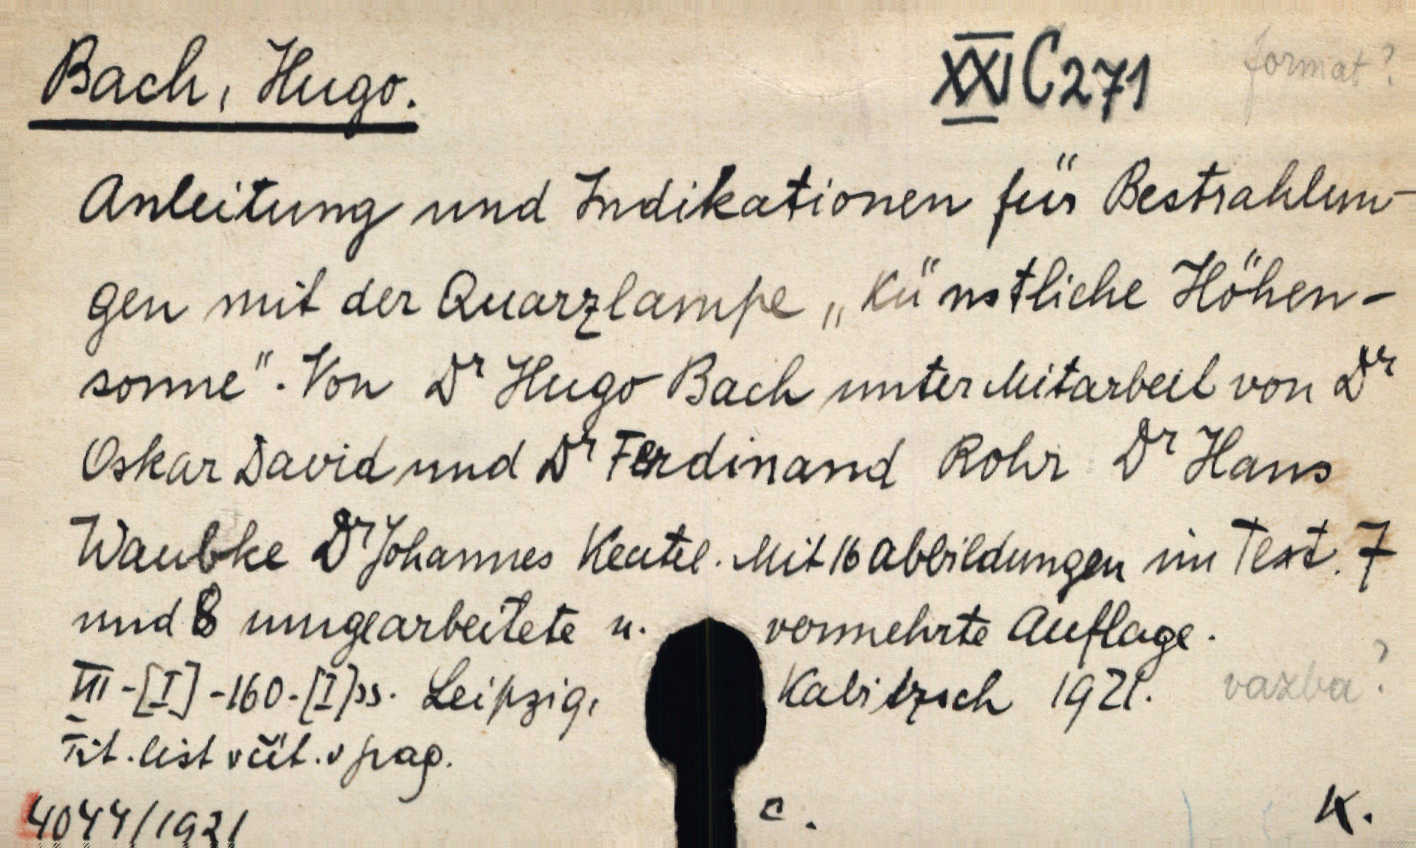 Bach, Hugo. XXI C 271 format?
Anleitung und Indikationen für Bestrahlun-
gen mit der Quarzlampe „Künstliche Höhen-
sonne". Von Dr Hugo Bach unter Mitarbeit von Dr
Oskar David und Dr Ferdinand Rohr Dr Hans
Waubke Dr Johannes Keutel. Mit 16 Abbildungen im Text. 7
und 8 umgearbeitete u. vermehrte Auflage.
III-[I]-160-[I] ss. Leipzig, Kabitzsch 1921. vazba?
Tit. list včít. v pag.
4044/1921 c. K.